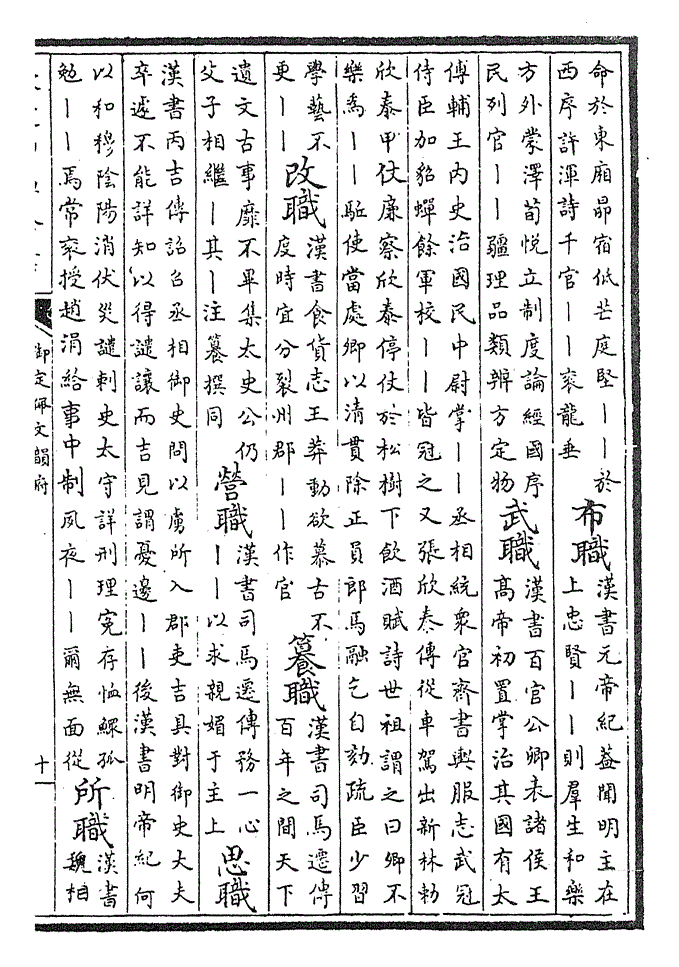 命於東廂昴宿低芒庭堅丨丨於
西序許渾詩千官丨丨袞龍垂
布職
漢書元帝紀蓋聞明主在
上忠賢丨丨則羣生和樂
方外蒙澤荀悅立制度論經國序
民列官丨丨疆理品類辨方定物
武職
漢書百官公卿表諸侯王
高帝初置掌治其國有太
傅輔王內史治國民中尉掌丨丨丞相統衆官齊書輿服志武冠
侍臣加貂蟬餘軍校丨丨皆冠之又張欣泰傳從車駕出新林勅
欣泰甲仗廉察欣泰停仗於松樹下飲酒賦詩世祖謂之曰卿不
樂爲丨丨駈使當處卿以清貫除正員郎馬融乞自劾疏臣少習
學藝不
更丨丨
改職
漢書食貨志王莽動欲慕古不
度時宜分裂州郡丨丨作官
篹職
漢書司馬遷傳
百年之間天下
遺文古事靡不畢集太史公仍
父子相繼丨其丨注篹撰同
營職
漢書司馬遷傳務一心
丨丨以求親媚于主上
思職
漢書丙吉傳詔召丞相御史問以虜所入郡吏吉具對御史大夫
卒遽不能詳知以得譴讓而吉見謂憂邊丨丨後漢書明帝紀何
以和穆陰陽消伏災譴刺史太守詳刑理寃存恤鰥孤
勉丨丨焉常袞授趙涓給事中制夙夜丨丨爾無面從
所職
漢書
魏相
御定佩文韻府
十